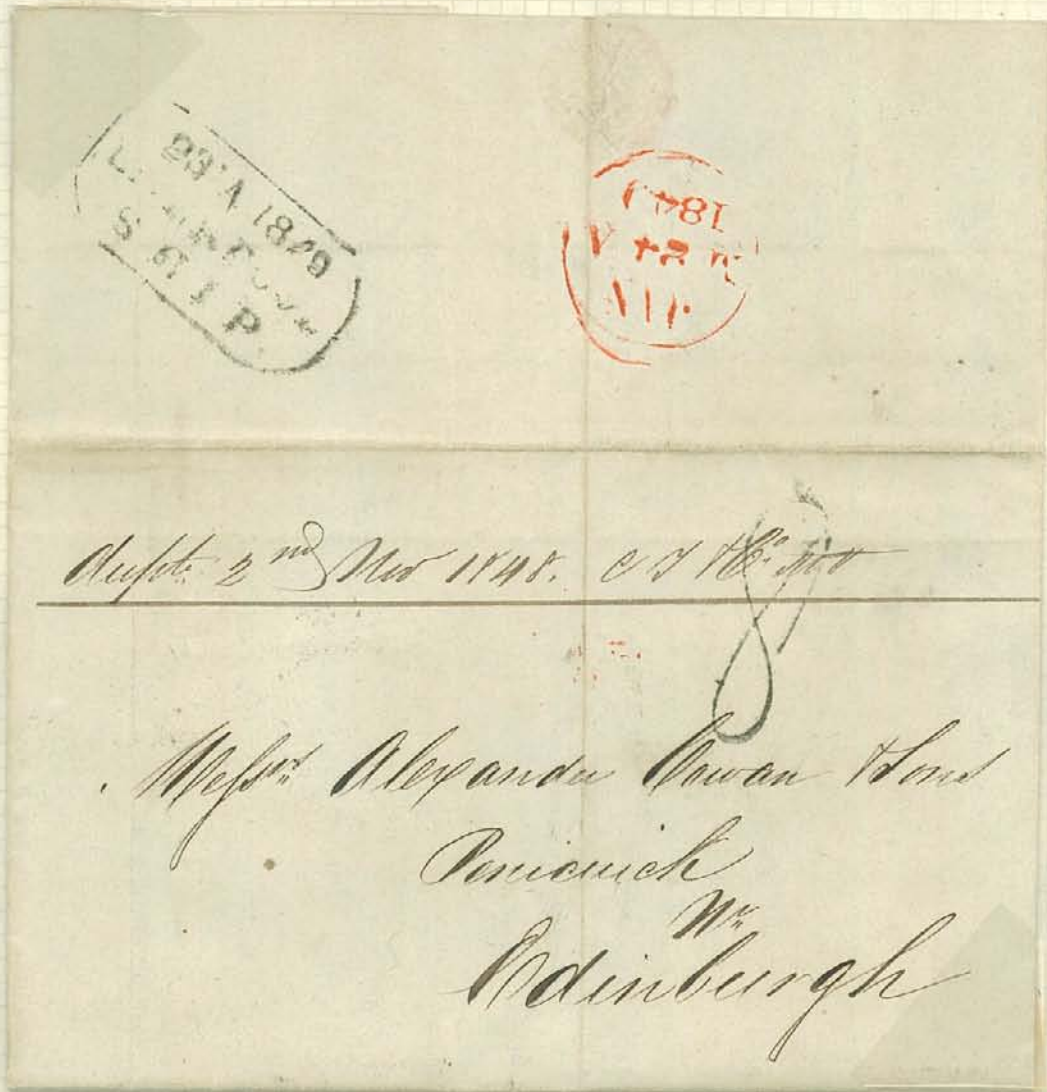 23 JA 1849
LIVERPOOL
SHIP
1849
24
2nd Nov 1848.
8
Messrs Alexander Cowan & Sons
Penicuick
Nr
Edinburgh